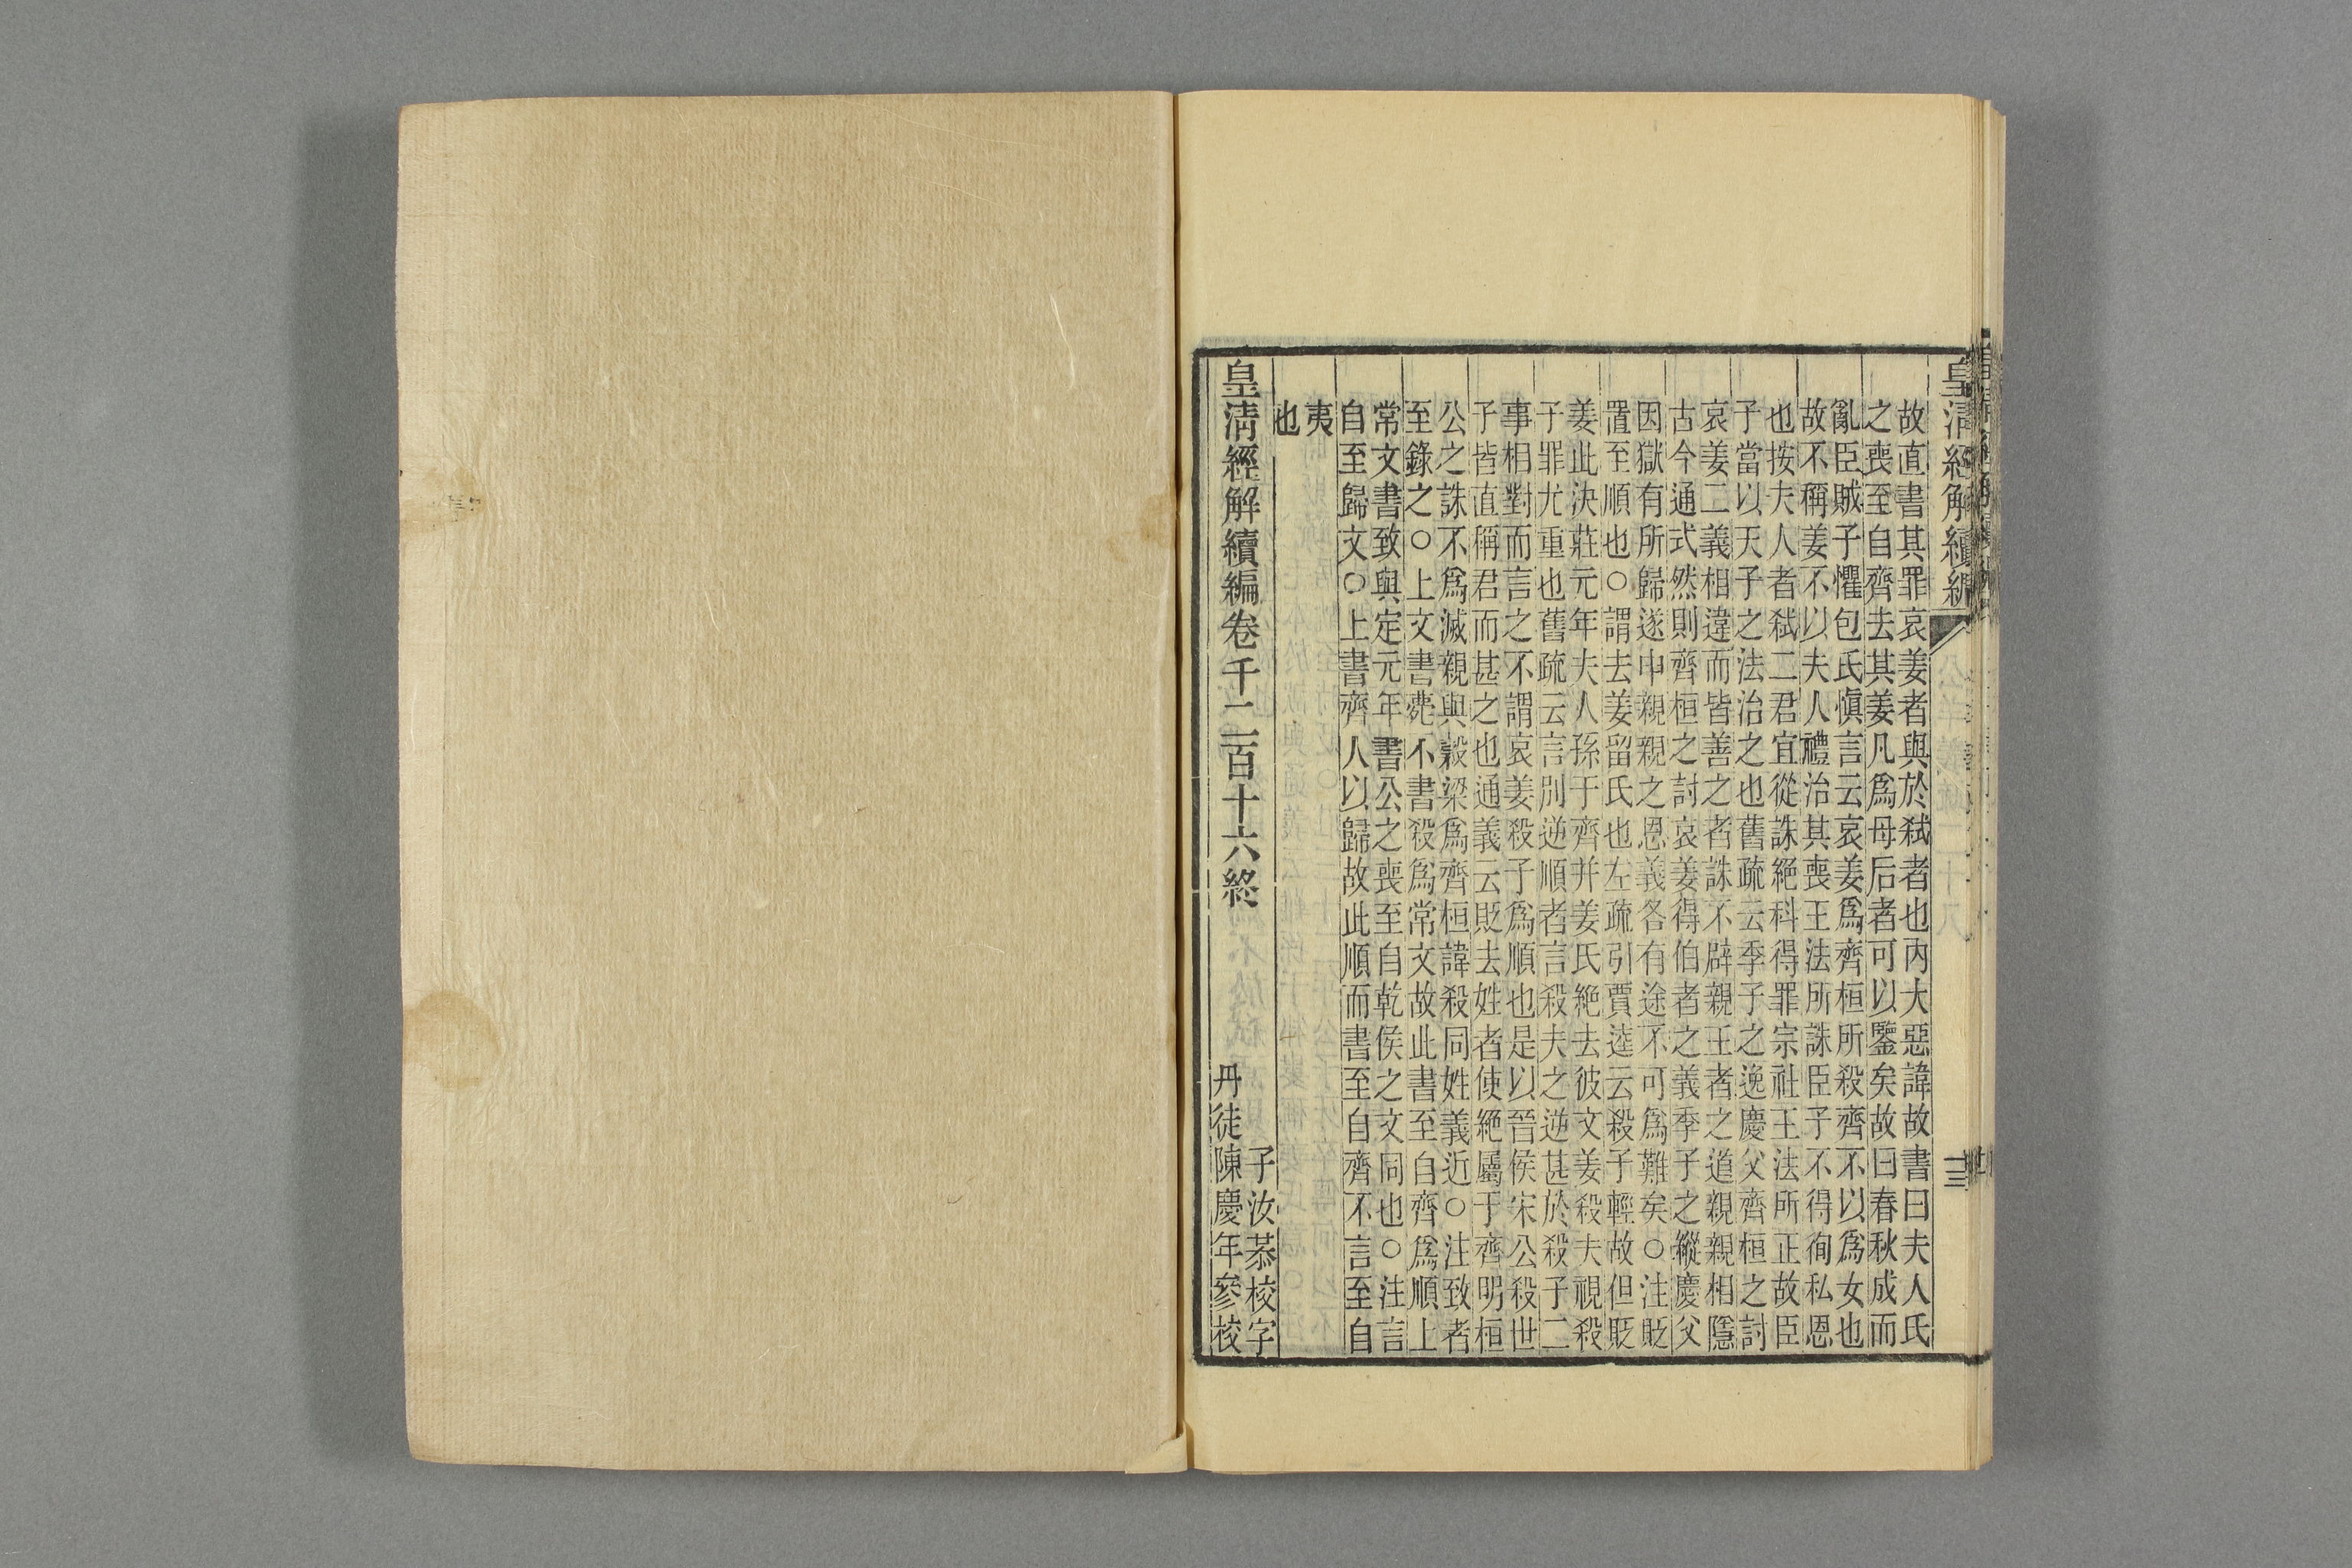 皇清經解續編
故直書其罪哀姜者與於弒者也內大惡諱故書曰夫人氏
之喪至自齊去其姜凡為母后者可以鑒矣故曰春秋成而
亂臣賊子懼包氏愼言云哀姜為齊桓所殺齊不以為女也
故不稱姜不以夫人禮治其喪王法所誅臣子不得徇私恩
也按夫人者弒二君宜從誅絕科得罪宗社王法所正故臣
子當以天子之法治之也舊疏云季子之逸慶父齊桓之討
哀姜二義相違而皆善之者誅不辟親王者之道親親相隱
古今通式然則齊桓之討哀姜得伯者之義季子之縱慶父
因獄有所歸遂申親親之恩義各有途不可為難矣○注貶
置至順也○謂去姜留氏也左疏引賈逵云殺子輕故但貶
姜此決莊元年夫人孫于齊并姜氏絕去彼文姜殺夫視殺
子罪尤重也舊疏云言別逆順者言殺夫之逆甚於殺子二
事相對而言之不謂哀姜殺子為順也是以晉侯宋公殺世
子皆直稱君而甚之也通義云貶去姓者使絕屬于齊明桓
公之誅不為滅親與穀梁為齊桓諱殺同姓義近○注致者
至錄之○上文書薨不書殺為常文故此書至自齊為順上
常文書致與定元年書公之喪至自乾侯之文同也○注言
自至歸文○上書齊人以歸故此順而書至自齊不言至自
夷
也
皇清經解續編卷千二百十六終
子汝恭校字
丹徒陳慶年參校